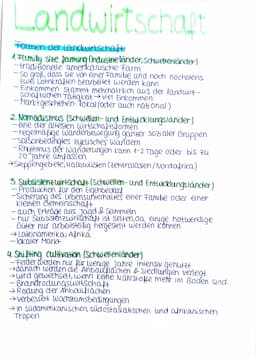 Landwirtschaft
Formen der Landwirtschaft
1. Family size farming (Industrieländer, Schwellenländer)
- traditionelle amerikanische Farm
- so groß, dass sie von einer Familie und noch höchstens
zwei Lohnkräften bearbeitet werden kann
- Einkommen stammt mehrheitlich aus der landwirt-
schaftlichen Tätigkeit → viel Einkommen
- Marktgeschehen: lokal (oder auch national)
2. Nomadismus (Schwellen- und Entwicklungsländer)
- eine der ältesten Wirtschaftsformen
- regelmäßige Wanderbewegung ganzer sozialer Gruppen
- saisonbedingtes zyklisches Wandern
- Rhythmus der Wanderungen kann 1-2 Tage oder bis zu
20 Jahre umfassen
→ Steppengebiete, Halbwüsten (Zentralasien/Nordafrika)
3. Subsistenzwirtschaft (Schwellen- und Entwicklungsländer)
- Produktion für den Eigenbedarf
- Sicherung des Lebensunterhaltes einer Familie oder einer
kleinen Gemeinschaft
- auch Erträge aus Jagd & Sammeln
- nur Subsistenzwirtschaft ist selten, da einige notwendige
Güter nur arbeitsteilig hergestellt werden können
→ Lateinamerika, Afrika
- lokaler Markt
4. Shifting cultivation (Schwellenländer)
- Felder werden nur für wenige Jahre intensiv genutzt
→ danach werden die Anbauflächen & Siedlungen verlegt
→ wird gewechselt, wenn keine Nährstoffe mehr im Boden sind
- Brandrodungswirtschaft
→ Rodung der Anbauflächen
→ verbessert Wachstumsbedingungen
→ in südamerikanischen, südostasiatischen und afrikanischen
Tropen